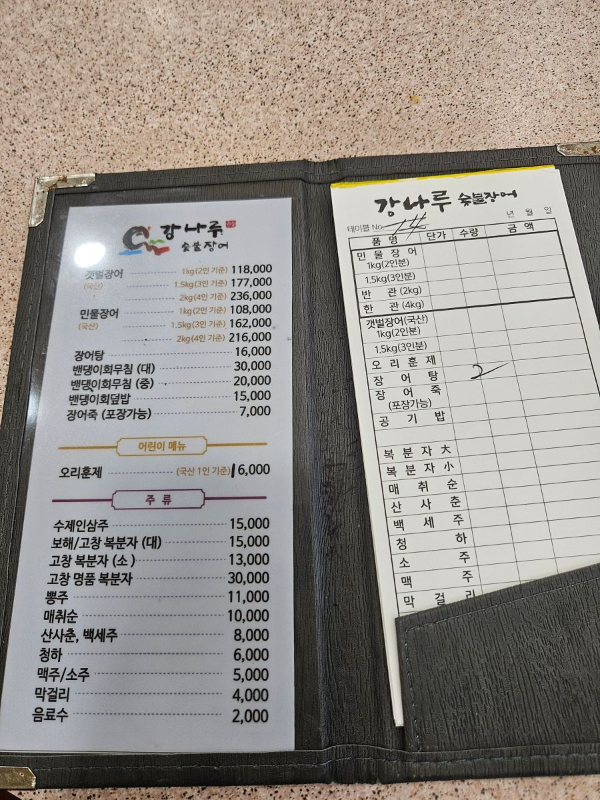 강나루
숯불장어
갯벌장어 1kg(2인 기준) 118,000
(국산) 1.5kg(3인 기준) 177,000
2kg(4인 기준) 236,000
민물장어 1kg(2인 기준) 108,000
(국산) 1.5kg(3인 기준) 162,000
2kg(4인 기준) 216,000
장어탕 16,000
밴댕이회무침 (대) 30,000
밴댕이회무침 (중) 20,000
밴댕이회덮밥 15,000
장어죽 (포장가능) 7,000
어린이 메뉴
오리훈제 (국산 1인 기준) 16,000
주 류
수제인삼주 15,000
보해/고창 복분자 (대) 15,000
고창 복분자 (소) 13,000
고창 명품 복분자 30,000
뽕주 11,000
매취순 10,000
산사춘, 백세주 8,000
청하 6,000
맥주/소주 5,000
막걸리 4,000
음료수 2,000
강나루 숯불장어
테이블 No. 14 년 월 일
품 명 단가 수량 금 액
민 물 장 어
1kg(2인분)
1.5kg(3인분)
반 관 (2kg)
한 관 (4kg)
갯벌장어(국산)
1kg(2인분)
1.5kg(3인분)
오 리 훈 제
장 어 탕 2
장 어 죽
(포장가능)
공 기 밥
복 분 자 大
복 분 자 小
매 취 순
산 사 춘
백 세 주
청 하
소 주
맥 주
막 걸 리